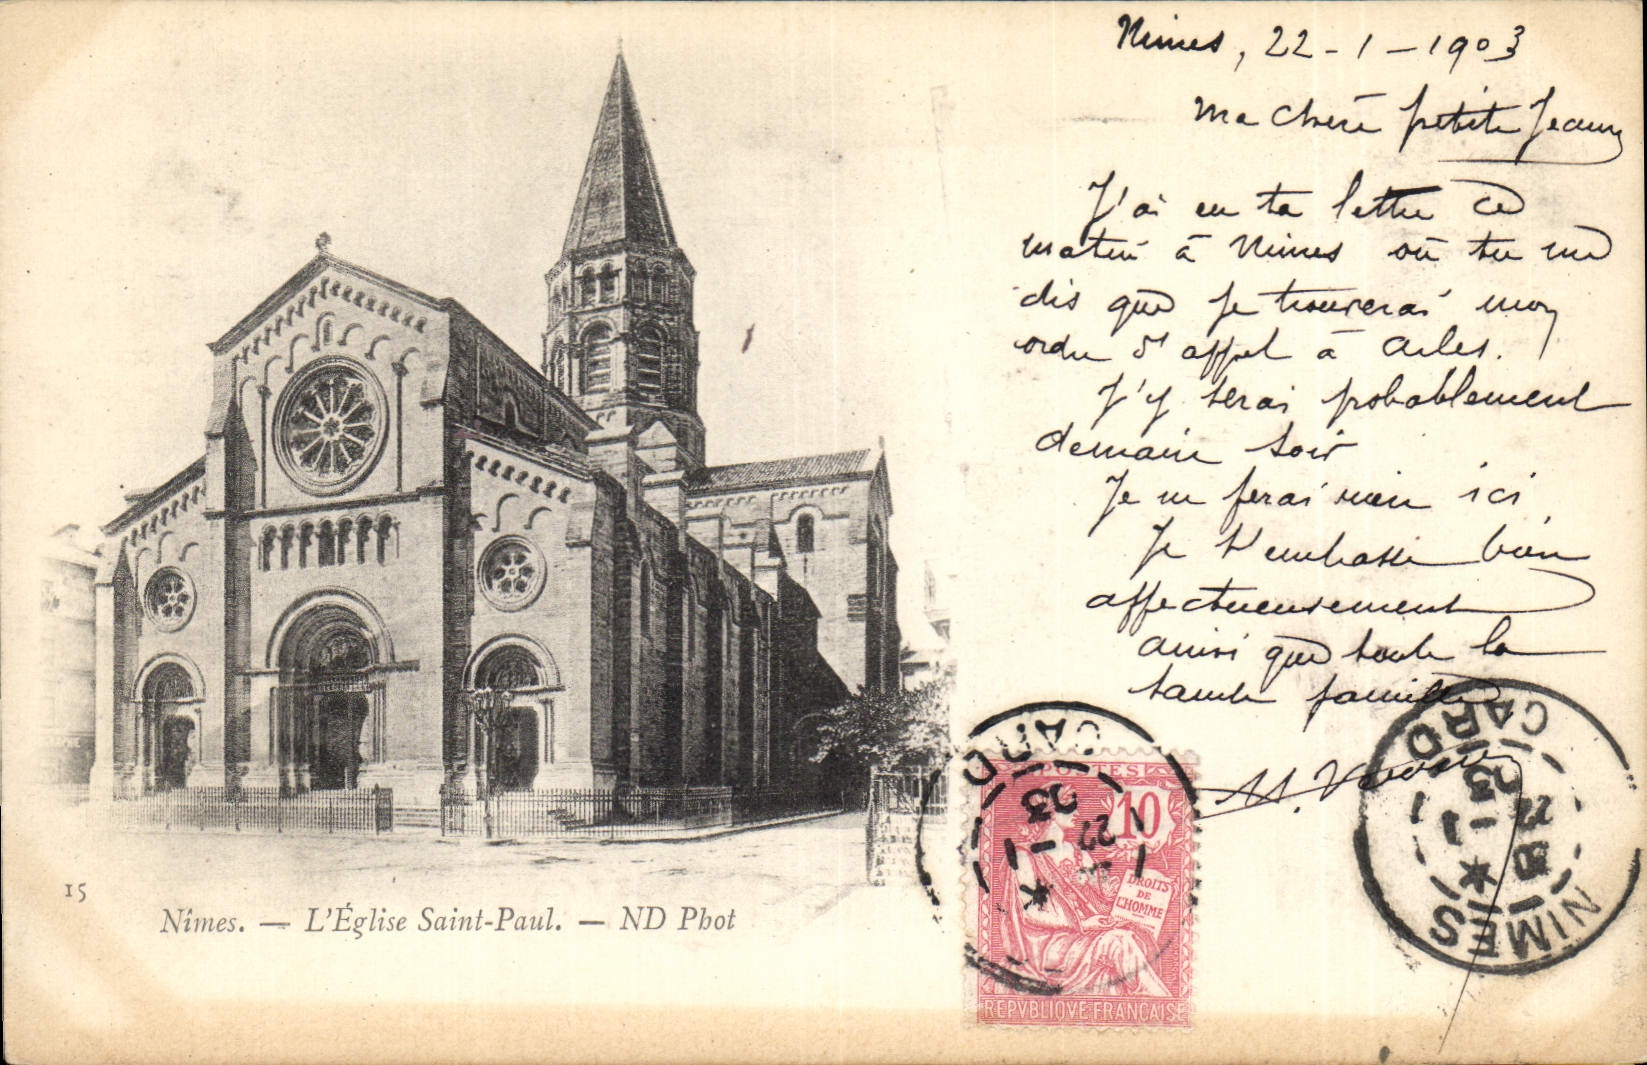 Nimes, 22-1-1903
Ma chère petite Jeanne
J'ai eu ta lettre ce
matin à Nimes où tu me
dis que je trouverai mon
ordre d'appel à Arles.
J'y serai probablement
demain soir
Je ne ferai rien ici
Je t'embrasse bien
affectueusement
ainsi que toute la
sainte famille
CARD
NIMES
GARD
22
1
03
POSTES
10
DROITS
DE
L'HOMME
REPVBLIQVE FRANÇAISE
15
Nîmes. — L'Église Saint-Paul. — ND Phot